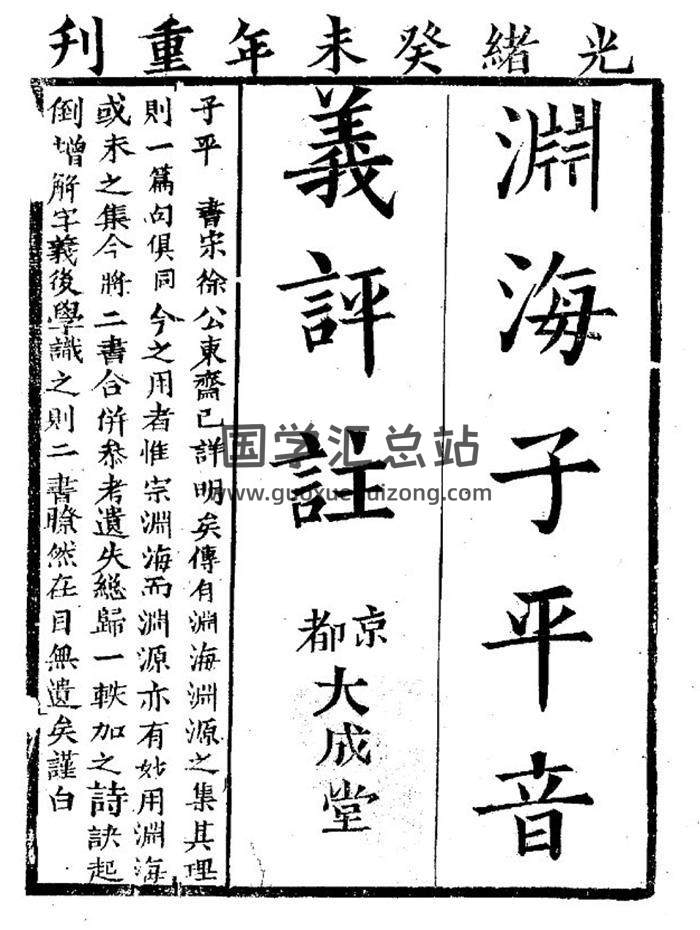 光緒癸未年重刊
淵海子平音
義評註
京都
大成堂
子平 書宋徐公東齋已詳明矣傳有淵海淵源之集其理
則一篇句俱同今之用者惟宗淵海而淵源亦有妙用淵海
或未之集今將二書合併叅考遺失總歸一帙加之詩訣起
倒增解字義後學識之則二書瞭然在目無遺矣謹白
国学汇总站
www.guoxuehuizong.com